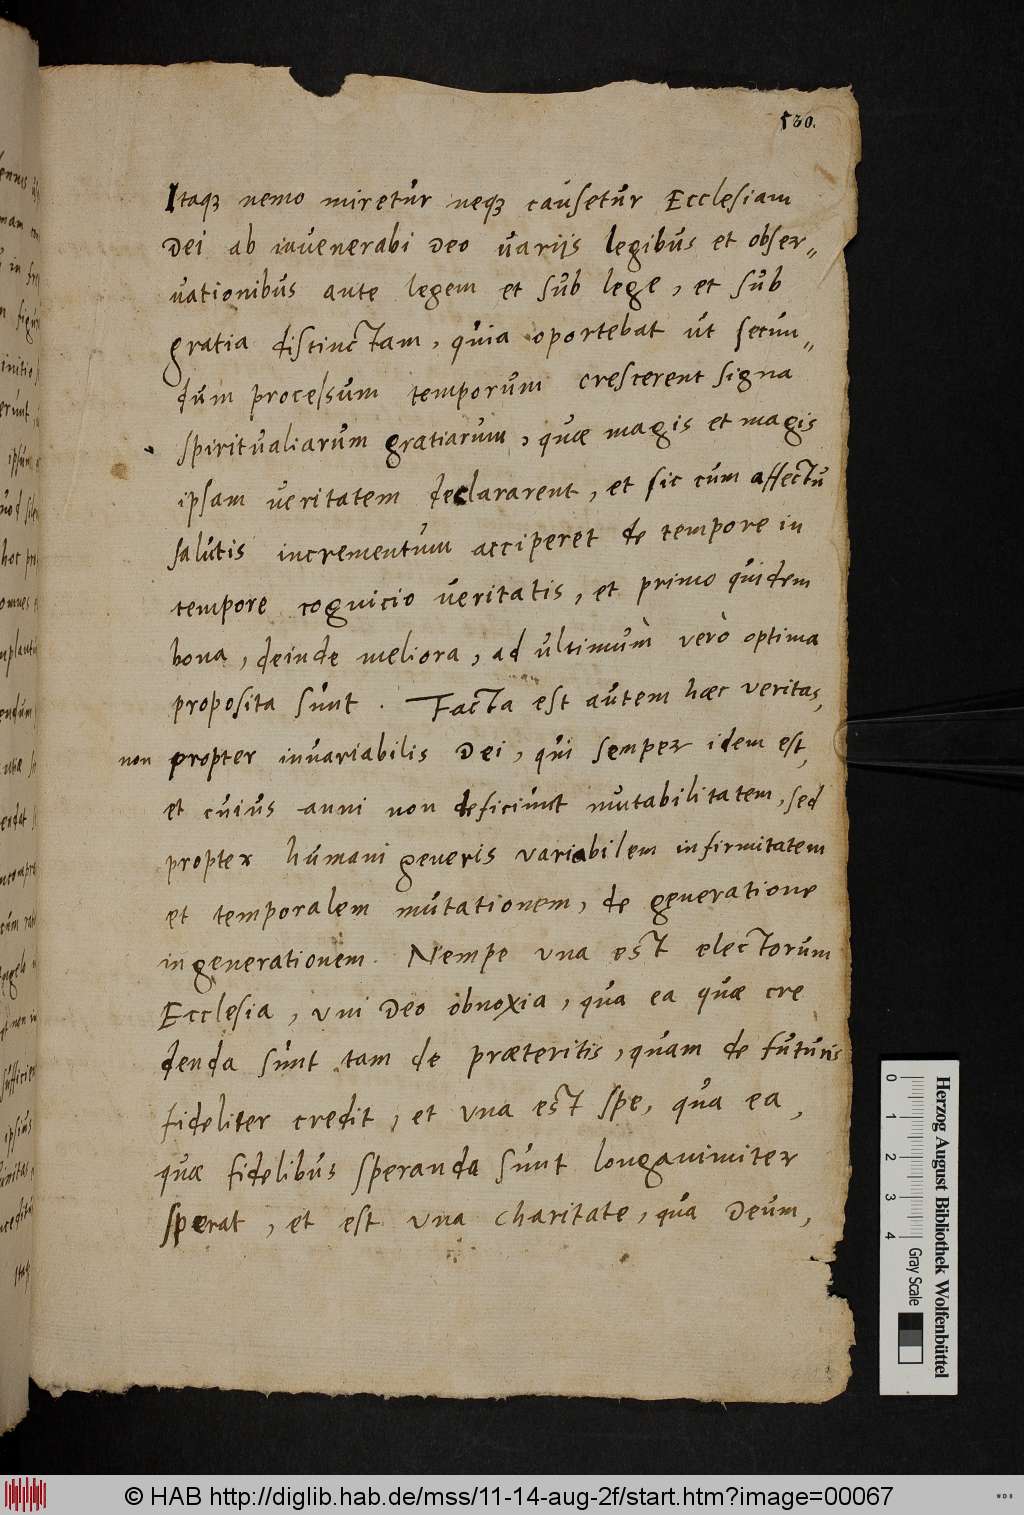 530.
Itaqꝫ nemo miretur neqꝫ causetur Ecclesiam
Dei ab inuenerabi Deo uarijs legibus et obser„
uationibus ante legem et sub lege, et sub
gratia distinctam, quia oportebat ut secun„
dum processum temporum crescerent signa
spiritualiarum gratiarum, quæ magis et magis
ipsam ueritatem declararent, et sic cum affectu
salutis incrementum acciperet de tempore in
tempore cognicio ueritatis, et primo quidem
bona, deinde meliora, ad ultimum verò optima
proposita sunt. Facta est autem hæc veritas,
non propter inuariabilis Dei, qui semper idem est,
et cuius anni non deficiunt mutabilitatem, sed
propter humani generis variabilem infirmitatem
et temporalem mutationem, de generatione
in generationem. Nempe una est electorum
Ecclesia, uni Deo obnoxia, qua ea quæ cre
denda sunt tam de præteritis, quam de futuris
fideliter credit, et una est spe, qua ea,
quæ fidelibus speranda sunt longanimiter
sperat, et est una charitate, qua Deum,
Herzog August Bibliothek Wolfenbüttel
0 1 2 3 4 Gray Scale
© HAB http://diglib.hab.de/mss/11-14-aug-2f/start.htm?image=00067